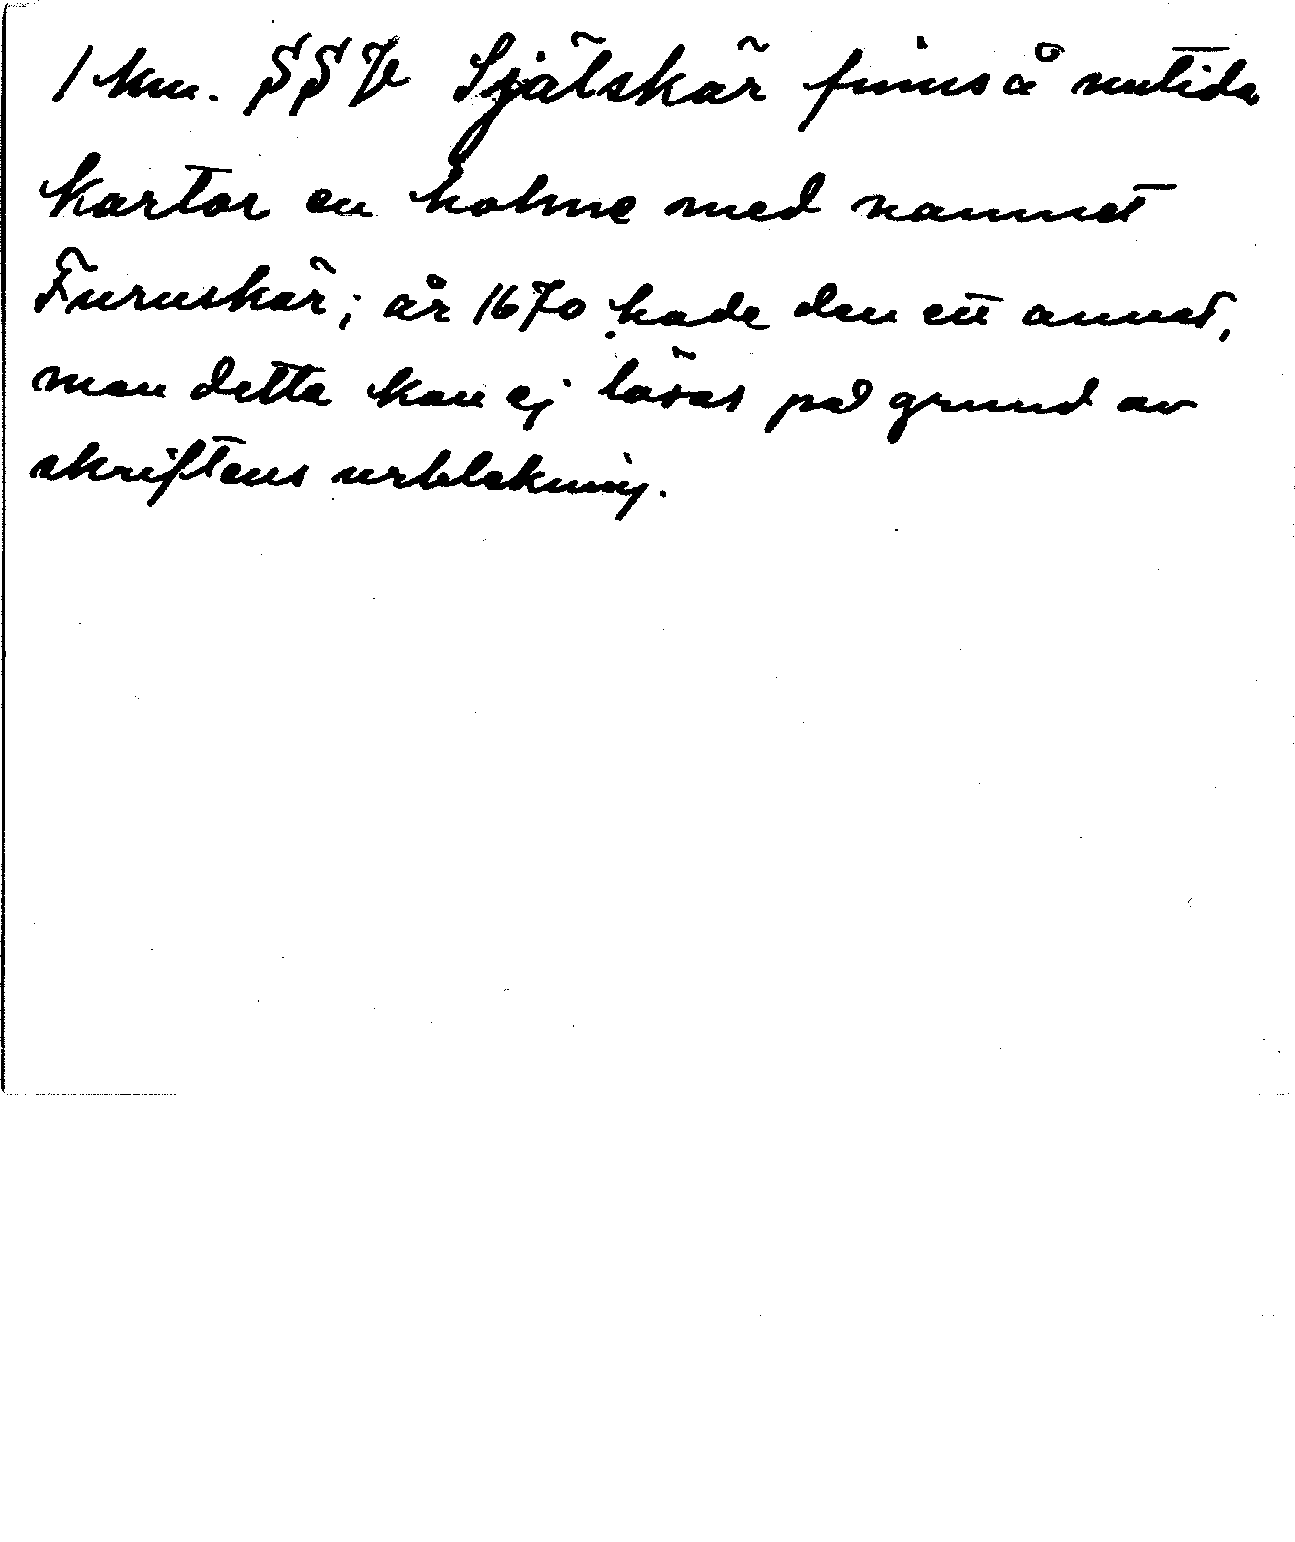 1 km. SSV Själskär finns å nutida
kartor en holme med namnet
Furuskär; år 1670 hade den ett annat,
men detta kan ej läsas på grund av
skriftens urblekning.